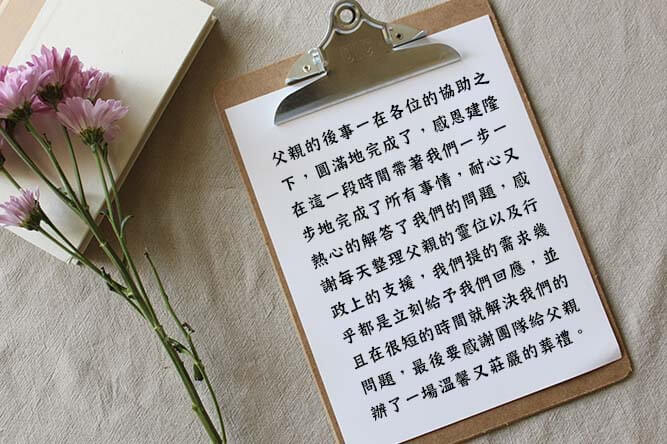 父親的後事一在各位的協助之
下，圓滿地完成了，感恩建隆
在這一段時間帶著我們一步一
步地完成了所有事情，耐心又
熱心的解答了我們的問題，感
謝每天整理父親的靈位以及行
政上的支援，我們提的需求幾
乎都是立刻給予我們回應，並
且在很短的時間就解決我們的
問題，最後要感謝團隊給父親
辦了一場溫馨又莊嚴的葬禮。